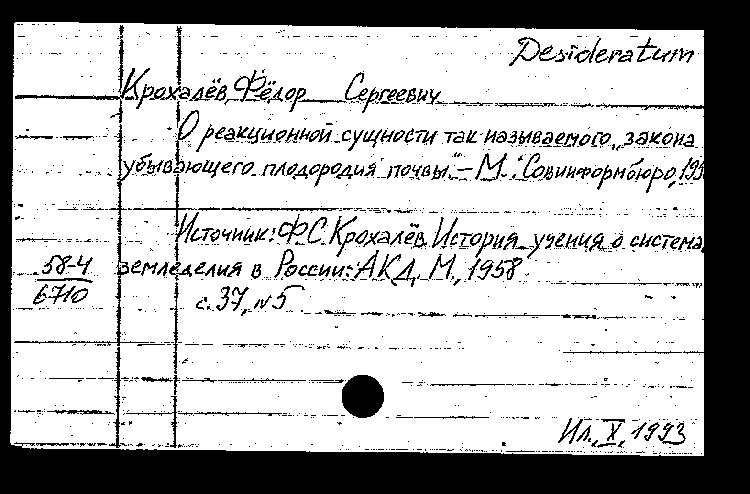 Desideratum
Крохалёв, Фёдор Сергеевич
О реакционной сущности так называемого „закона
убывающего плодородия почвы".– М.: Совинформбюро,
Источник: Ф.С. Крохалёв. История учения о система
58-4 земледелия в России: АКД, М., 1958
6710 с. 37, N 5
Ил., X, 1993